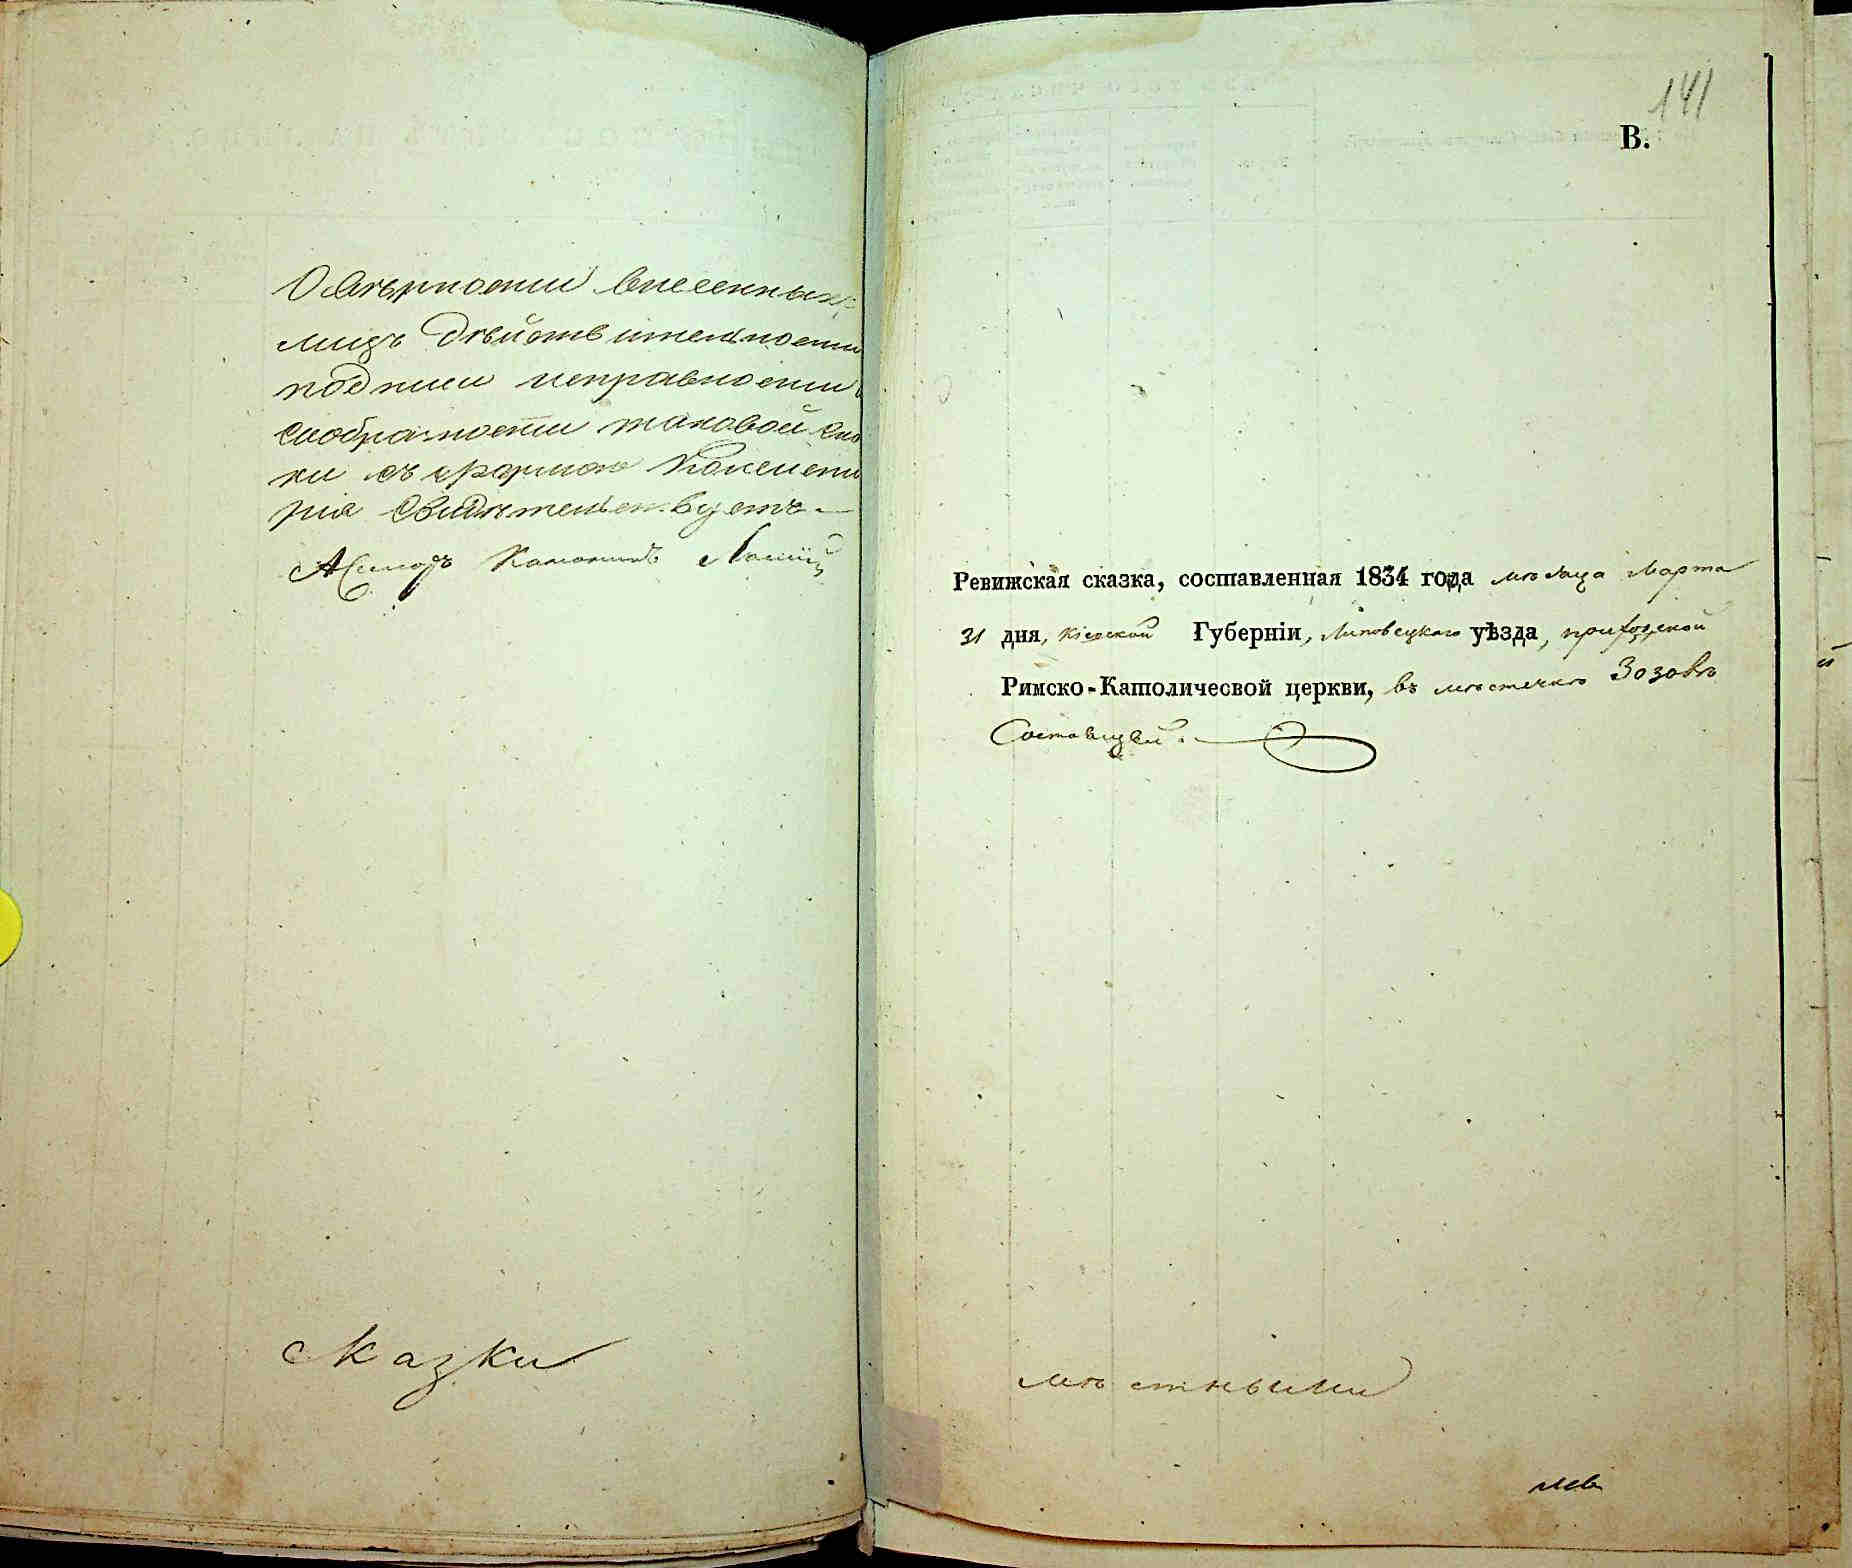 О вѣрности внесенныхъ
лицъ дѣйствительности
подписи исправности
сообразности таковой ска
ки съ формою Консисто
рія свидѣтельствуетъ
Асесоръ Каноникъ
сказки
141
В.
Ревижская сказка, составленная 1834 года мѣсяца Марта
31 дня, Кіевской Губерніи, Липовецкаго уѣзда, приходской
Римско-Католичесвой церкви, въ мѣстечкѣ Зозовѣ
Состоящей.
мѣстными